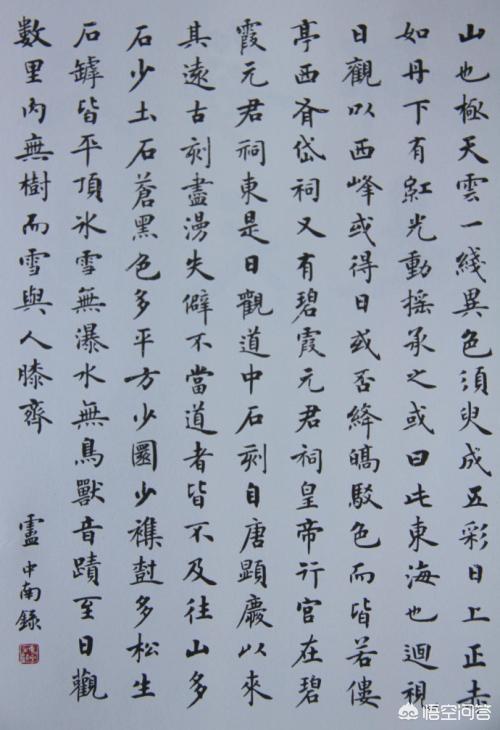 山也極天雲一綫異色須臾成五彩日上正赤
如丹下有紅光動摇承之或曰此東海也迴視
日觀以西峰或得日或否絳皜駁色而皆若僂
亭西有岱祠又有碧霞元君祠皇帝行宫在碧
霞元君祠東是日觀道中石刻自唐顯慶以來
其遠古刻盡漫失僻不當道者皆不及往山多
石少土石蒼黑色多平方少圜少襍樹多松生
石罅皆平頂冰雪無瀑水無鳥獸音蹟至日觀
數里内無樹而雪與人膝齊
盧中南録
悟空问答